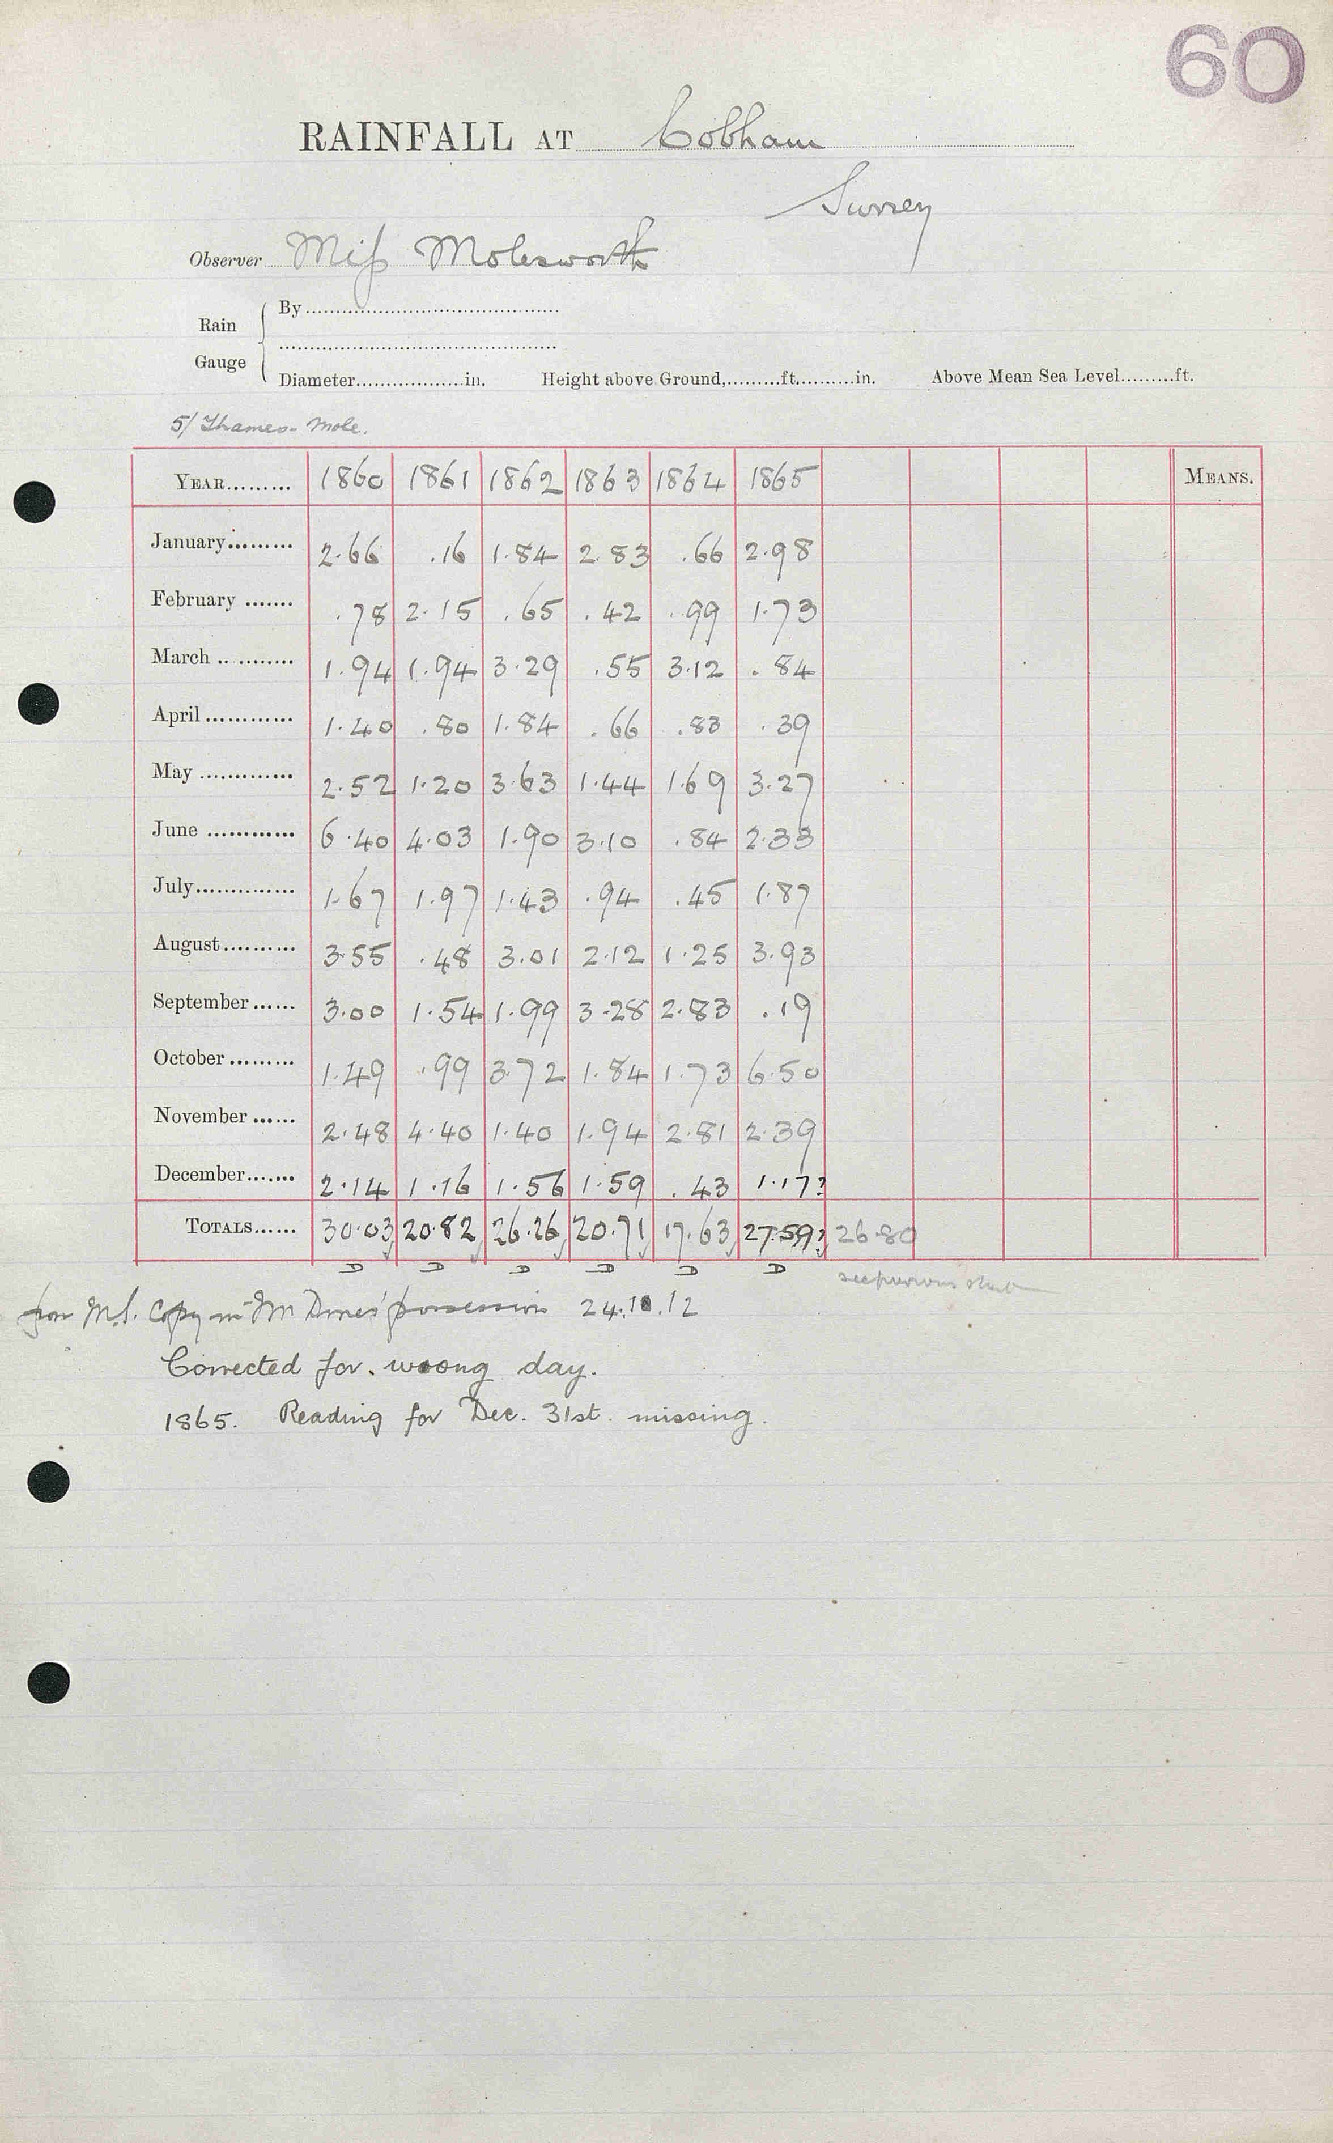 60
RAINFALL AT Cobham
Surrey
Observer Miss Molesworth
Rain Gauge
By
Diameter in. Height above Ground, ft. in. Above Mean Sea Level ft.
5/ Thames - Mole.
YEAR 1860 1861 1862 1863 1864 1865 MEANS.
January 2.66 .16 1.84 2.83 .66 2.98
February .78 2.15 .65 .42 .99 1.73
March 1.94 1.94 3.29 .55 3.12 .84
April 1.40 .80 1.84 .66 .83 .39
May 2.52 1.20 3.63 1.44 1.69 3.27
June 6.40 4.03 1.90 3.10 .84 2.33
July 1.67 1.97 1.43 .94 .45 1.87
August 3.55 .48 3.01 2.12 1.25 3.93
September 3.00 1.54 1.99 3.28 2.83 .19
October 1.49 .99 3.72 1.84 1.73 6.50
November 2.48 4.40 1.40 1.94 2.81 2.39
December 2.14 1.16 1.56 1.59 .43 1.17?
TOTALS 30.03 20.82 26.26 20.71 17.63 27.59? 26.80
D D D D D D
see previous
from M.S. Copy in Mr Dines' possession 24.10.12
Corrected for wrong day.
1865. Reading for Dec. 31st missing.